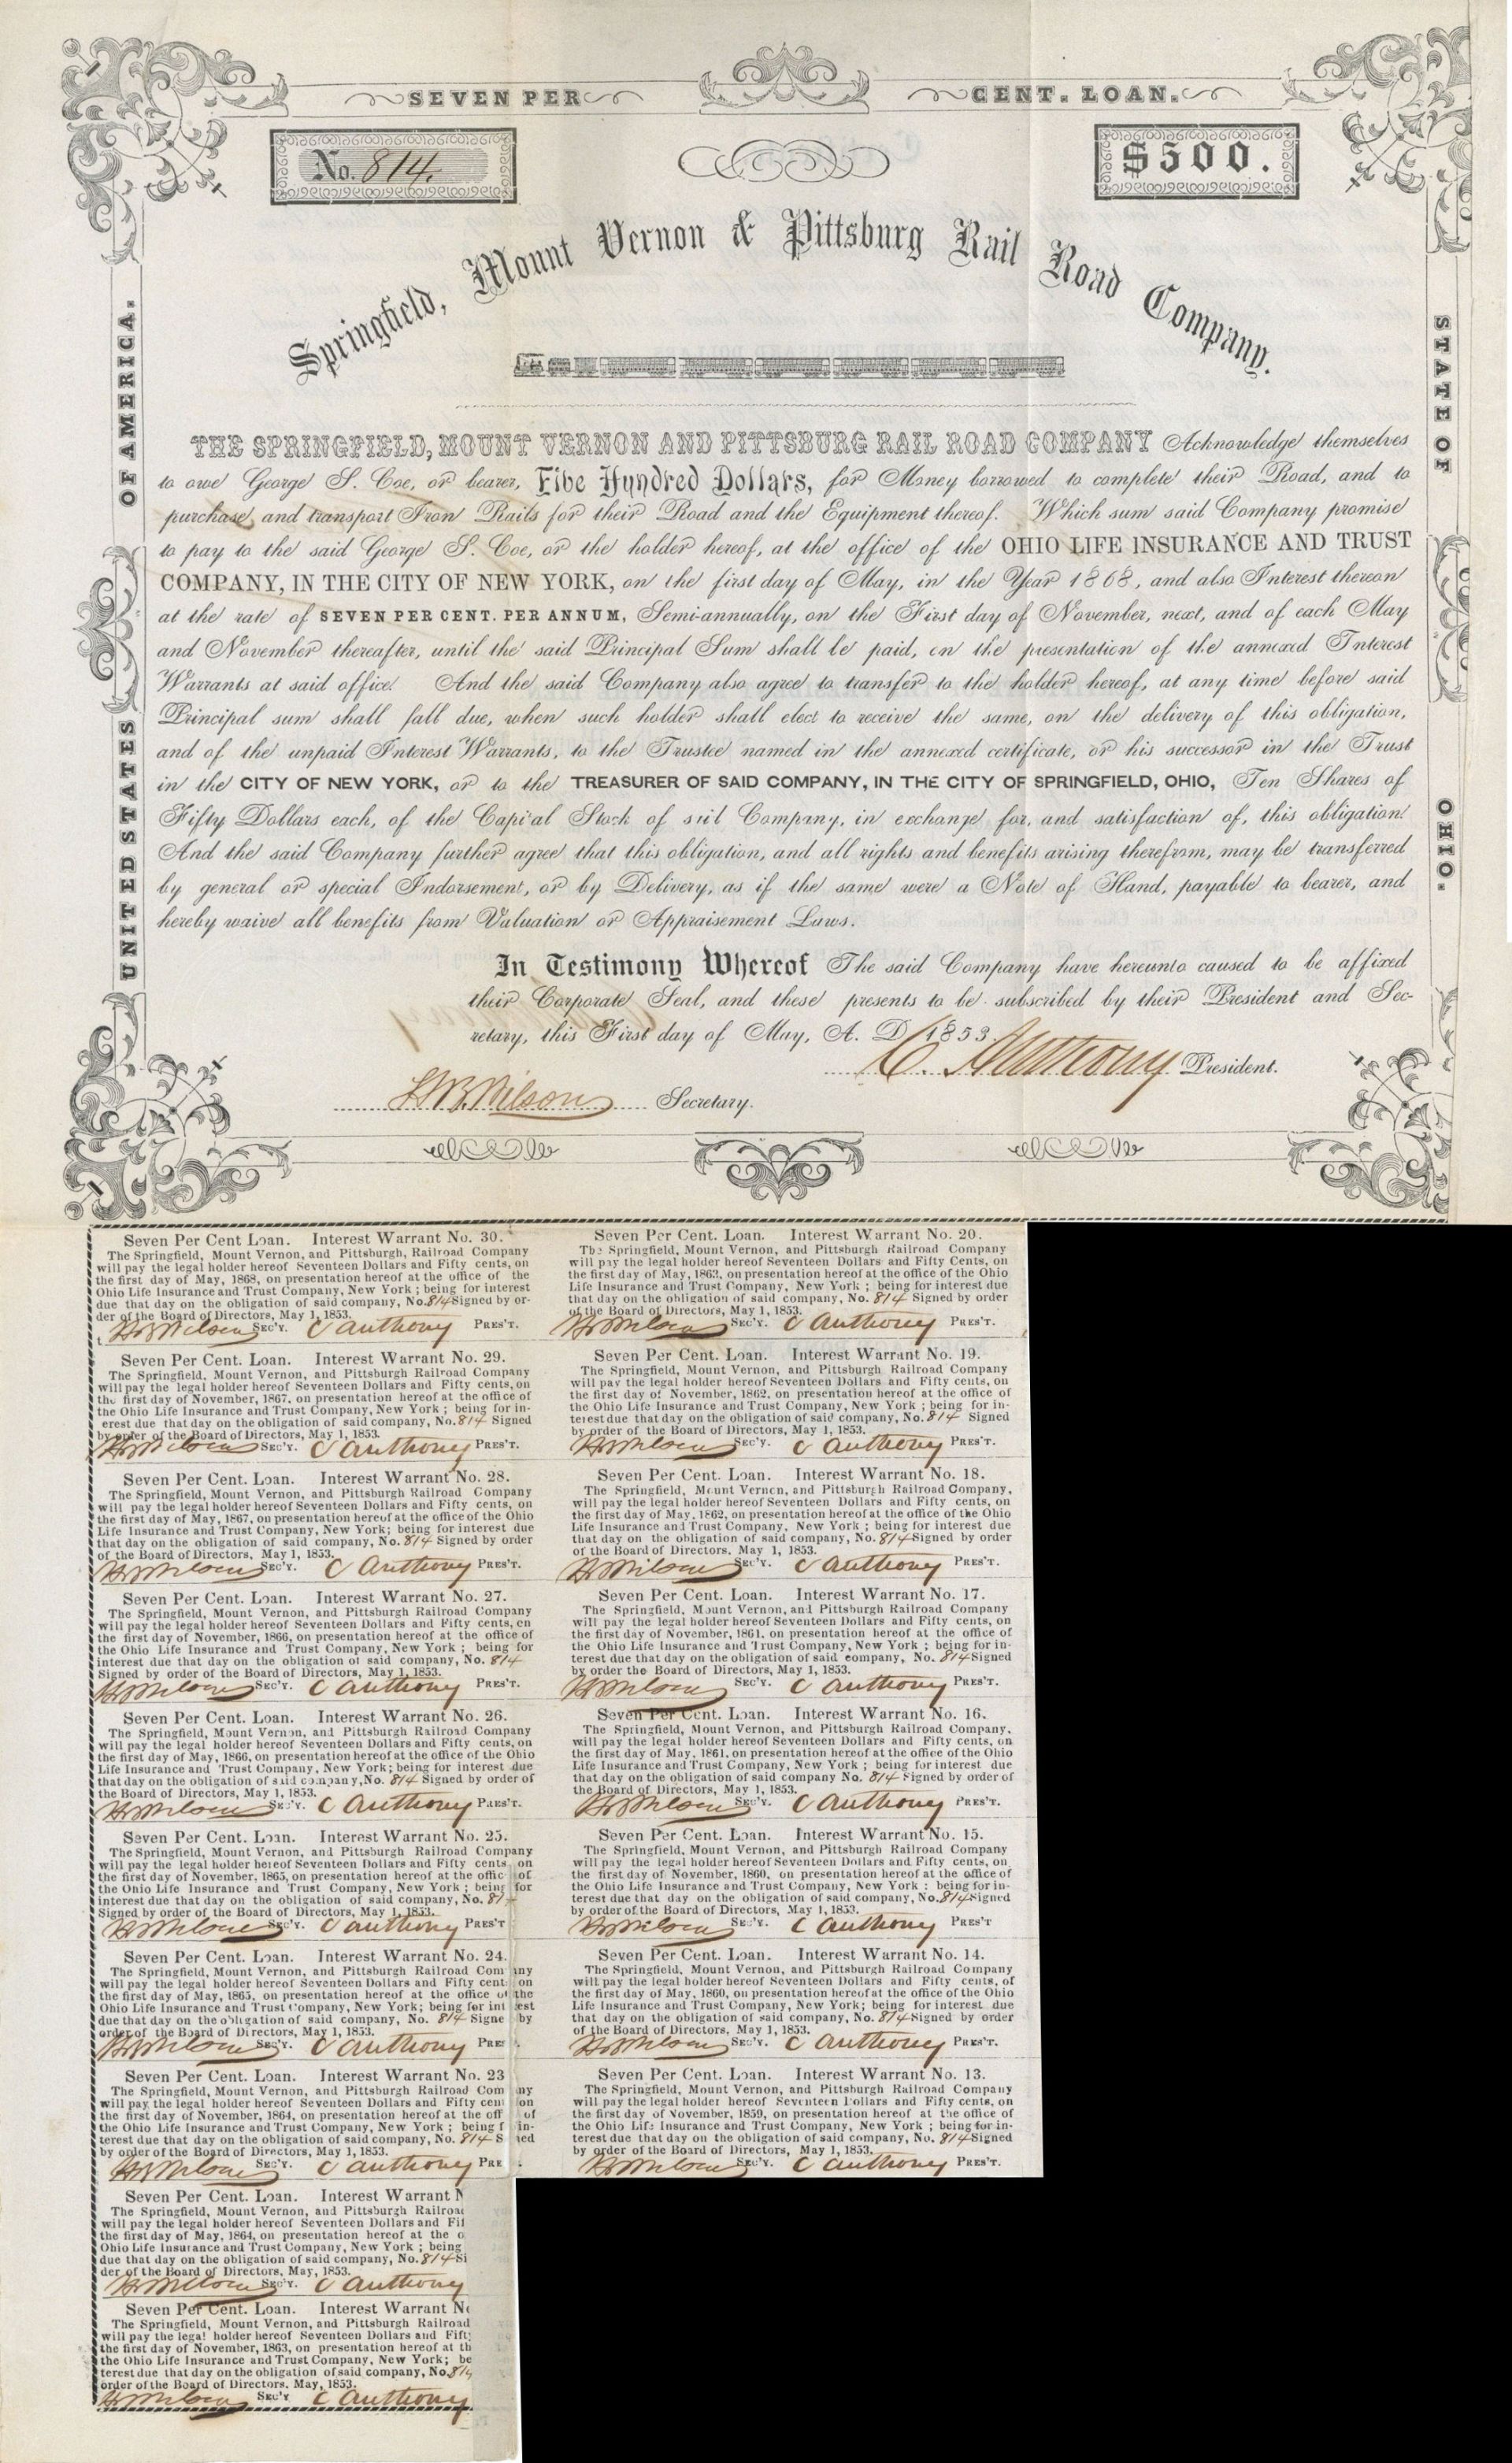 SEVEN PER CENT. LOAN.
No. 814.
$500.
Springfield, Mount Vernon & Pittsburg Rail Road Company.
OF AMERICA.
UNITED STATES
STATE OF
OHIO.
THE SPRINGFIELD, MOUNT VERNON AND PITTSBURG RAIL ROAD COMPANY Acknowledge themselves
to owe George S. Coe, or bearer, Five Hundred Dollars, for Money borrowed to complete their Road, and to
purchase, and transport Iron Rails for their Road and the Equipment thereof. Which sum said Company promise
to pay to the said George S. Coe, or the holder hereof, at the office of the OHIO LIFE INSURANCE AND TRUST
COMPANY, IN THE CITY OF NEW YORK, on the first day of May, in the Year 1868, and also Interest thereon
at the rate of SEVEN PER CENT. PER ANNUM, Semi-annually, on the First day of November, next, and of each May
and November thereafter, until the said Principal Sum shall be paid, on the presentation of the annexed Interest
Warrants at said office. And the said Company also agree to transfer to the holder hereof, at any time before said
Principal sum shall fall due, when such holder shall elect to receive the same, on the delivery of this obligation,
and of the unpaid Interest Warrants, to the Trustee named in the annexed certificate, or his successor in the Trust
in the CITY OF NEW YORK, or to the TREASURER OF SAID COMPANY, IN THE CITY OF SPRINGFIELD, OHIO, Ten Shares of
Fifty Dollars each, of the Capital Stock of said Company, in exchange for, and satisfaction of, this obligation.
And the said Company further agree that this obligation, and all rights and benefits arising therefrom, may be transferred
by general or special Indorsement, or by Delivery, as if the same were a Note of Hand, payable to bearer, and
hereby waive all benefits from Valuation or Appraisement Laws.
In Testimony Whereof The said Company have hereunto caused to be affixed
their Corporate Seal, and these presents to be subscribed by their President and Sec-
retary, this First day of May, A. D. 1853.
C. Anthony President.
Wilson Secretary.
Seven Per Cent Loan. Interest Warrant No. 30.
The Springfield, Mount Vernon, and Pittsburgh, Railroad Company
will pay the legal holder hereof Seventeen Dollars and Fifty cents, on
the first day of May, 1868, on presentation hereof at the office of the
Ohio Life Insurance and Trust Company, New York ; being for interest
due that day on the obligation of said company, No. 814 Signed by or-
der of the Board of Directors, May 1, 1853.
Wilson SEC'Y. C Anthony PRES'T.
Seven Per Cent. Loan. Interest Warrant No. 29.
The Springfield, Mount Vernon, and Pittsburgh Railroad Company
will pay the legal holder hereof Seventeen Dollars and Fifty cents, on
the first day of November, 1867, on presentation hereof at the office of
the Ohio Life Insurance and Trust Company, New York ; being for in-
terest due that day on the obligation of said company, No. 814 Signed
by order of the Board of Directors, May 1, 1853.
Wilson SEC'Y. C Anthony PRES'T.
Seven Per Cent. Loan. Interest Warrant No. 28.
The Springfield, Mount Vernon, and Pittsburgh Railroad Company
will pay the legal holder hereof Seventeen Dollars and Fifty cents, on
the first day of May, 1867, on presentation hereof at the office of the Ohio
Life Insurance and Trust Company, New York; being for interest due
that day on the obligation of said company, No. 814 Signed by order
of the Board of Directors, May 1, 1853.
Wilson SEC'Y. C Anthony PRES'T.
Seven Per Cent. Loan. Interest Warrant No. 27.
The Springfield, Mount Vernon, and Pittsburgh Railroad Company
will pay the legal holder hereof Seventeen Dollars and Fifty cents, on
the first day of November, 1866, on presentation hereof at the office of
the Ohio Life Insurance and Trust Company, New York ; being for
interest due that day on the obligation of said company, No. 814
Signed by order of the Board of Directors, May 1, 1853.
Wilson SEC'Y. C Anthony PRES'T.
Seven Per Cent. Loan. Interest Warrant No. 26.
The Springfield, Mount Vernon, and Pittsburgh Railroad Company
will pay the legal holder hereof Seventeen Dollars and Fifty cents, on
the first day of May, 1866, on presentation hereof at the office of the Ohio
Life Insurance and Trust Company, New York; being for interest due
that day on the obligation of said company, No. 814 Signed by order of
the Board of Directors, May 1, 1853.
Wilson SEC'Y. C Anthony PRES'T.
Seven Per Cent. Loan. Interest Warrant No. 25.
The Springfield, Mount Vernon, and Pittsburgh Railroad Company
will pay the legal holder hereof Seventeen Dollars and Fifty cents, on
the first day of November, 1865, on presentation hereof at the offic of
the Ohio Life Insurance and Trust Company, New York ; being for
interest due that day on the obligation of said company, No. 81
Signed by order of the Board of Directors, May 1, 1853.
Wilson SEC'Y. C Anthony PRES'T
Seven Per Cent. Loan. Interest Warrant No. 24.
The Springfield, Mount Vernon, and Pittsburgh Railroad Com any
will pay the legal holder hereof Seventeen Dollars and Fifty cent on
the first day of May, 1865, on presentation hereof at the office of the
Ohio Life Insurance and Trust Company, New York; being for int est
due that day on the obligation of said company, No. 814 Signe by
order of the Board of Directors, May 1, 1853.
Wilson SEC'Y. C Anthony PRES
Seven Per Cent. Loan. Interest Warrant No. 23
The Springfield, Mount Vernon, and Pittsburgh Railroad Com ny
will pay the legal holder hereof Seventeen Dollars and Fifty cent on
the first day of November, 1864, on presentation hereof at the off of
the Ohio Life Insurance and Trust Company, New York ; being f in-
terest due that day on the obligation of said company, No. 814 S ned
by order of the Board of Directors, May 1, 1853.
Wilson SEC'Y. C Anthony PRE
Seven Per Cent. Loan. Interest Warrant N
The Springfield, Mount Vernon, and Pittsburgh Railroad
will pay the legal holder hereof Seventeen Dollars and Fif
the first day of May, 1864, on presentation hereof at the o
Ohio Life Insurance and Trust Company, New York ; being
due that day on the obligation of said company, No. 814 Si
der of the Board of Directors, May, 1853.
Wilson SEC'Y. C Anthony
Seven Per Cent. Loan. Interest Warrant No
The Springfield, Mount Vernon, and Pittsburgh Railroad
will pay the legal holder hereof Seventeen Dollars and Fift
the first day of November, 1863, on presentation hereof at th
the Ohio Life Insurance and Trust Company, New York; be
terest due that day on the obligation of said company, No. 814
order of the Board of Directors. May, 1853.
Wilson SEC'Y C Anthony
Seven Per Cent. Loan. Interest Warrant No. 20.
The Springfield, Mount Vernon, and Pittsburgh Railroad Company
will pay the legal holder hereof Seventeen Dollars and Fifty Cents, on
the first day of May, 1863, on presentation hereof at the office of the Ohio
Life Insurance and Trust Company, New York ; being for interest due
that day on the obligation of said company, No. 814 Signed by order
of the Board of Directors, May 1, 1853.
Wilson SEC'Y. C Anthony PRES'T.
Seven Per Cent. Loan. Interest Warrant No. 19.
The Springfield, Mount Vernon, and Pittsburgh Railroad Company
will pay the legal holder hereof Seventeen Dollars and Fifty cents, on
the first day of November, 1862, on presentation hereof at the office of
the Ohio Life Insurance and Trust Company, New York ; being for in-
terest due that day on the obligation of said company, No. 814 Signed
by order of the Board of Directors, May 1, 1853.
Wilson SEC'Y. C Anthony PRES'T.
Seven Per Cent. Loan. Interest Warrant No. 18.
The Springfield, Mount Vernon, and Pittsburgh Railroad Company,
will pay the legal holder hereof Seventeen Dollars and Fifty cents, on
the first day of May, 1862, on presentation hereof at the office of the Ohio
Life Insurance and Trust Company, New York ; being for interest due
that day on the obligation of said company, No. 814 Signed by order
of the Board of Directors, May 1, 1853.
Wilson SEC'Y. C Anthony PRES'T.
Seven Per Cent. Loan. Interest Warrant No. 17.
The Springfield, Mount Vernon, and Pittsburgh Railroad Company
will pay the legal holder hereof Seventeen Dollars and Fifty cents, on
the first day of November, 1861, on presentation hereof at the office of
the Ohio Life Insurance and Trust Company, New York ; being for in-
terest due that day on the obligation of said company, No. 814 Signed
by order the Board of Directors, May 1, 1853.
Wilson SEC'Y. C Anthony PRES'T.
Seven Per Cent. Loan. Interest Warrant No. 16.
The Springfield, Mount Vernon, and Pittsburgh Railroad Company,
will pay the legal holder hereof Seventeen Dollars and Fifty cents, on
the first day of May, 1861, on presentation hereof at the office of the Ohio
Life Insurance and Trust Company, New York ; being for interest due
that day on the obligation of said company No. 814 Signed by order of
the Board of Directors, May 1, 1853.
Wilson SEC'Y. C Anthony PRES'T.
Seven Per Cent. Loan. Interest Warrant No. 15.
The Springfield, Mount Vernon, and Pittsburgh Railroad Company
will pay the legal holder hereof Seventeen Dollars and Fifty cents, on
the first day of November, 1860, on presentation hereof at the office of
the Ohio Life Insurance and Trust Company, New York : being for in-
terest due that day on the obligation of said company, No. 814 Signed
by order of the Board of Directors, May 1, 1853.
Wilson SEC'Y. C Anthony PRES'T
Seven Per Cent. Loan. Interest Warrant No. 14.
The Springfield, Mount Vernon, and Pittsburgh Railroad Company
will pay the legal holder hereof Seventeen Dollars and Fifty cents, of
the first day of May, 1860, on presentation hereof at the office of the Ohio
Life Insurance and Trust Company, New York; being for interest due
that day on the obligation of said company, No. 814 Signed by order
of the Board of Directors, May 1, 1853.
Wilson SEC'Y. C Anthony PRES'T.
Seven Per Cent. Loan. Interest Warrant No. 13.
The Springfield, Mount Vernon, and Pittsburgh Railroad Company
will pay the legal holder hereof Seventeen Dollars and Fifty cents, on
the first day of November, 1859, on presentation hereof at the office of
the Ohio Life Insurance and Trust Company, New York ; being for in-
terest due that day on the obligation of said company, No. 814 Signed
by order of the Board of Directors, May 1, 1853.
Wilson SEC'Y. C Anthony PRES'T.